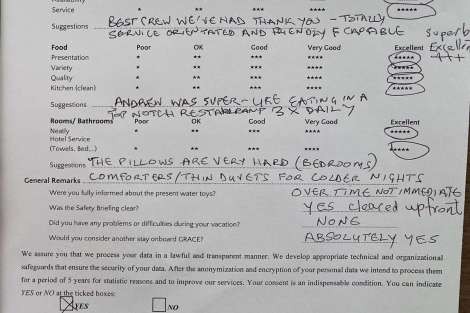 Service * ** *** **** *****
Suggestions BEST CREW WE'VE HAD THANK YOU - TOTALLY
SERVICE ORIENTATED AND FRIENDLY & CAPABLE
Superb
Food Poor OK Good Very Good Excellent Excellent
+++
Presentation * ** *** **** *****
Variety * ** *** **** *****
Quality * ** *** **** *****
Kitchen (clean) * ** *** **** *****
Suggestions ANDREW WAS SUPER - LIKE EATING IN A
TOP NOTCH RESTAURANT 3 X DAILY
Rooms/ Bathrooms Poor OK Good Very Good Excellent
Neatly * ** *** **** *****
Hotel Service
(Towels, Bed...) * ** *** **** *****
Suggestions THE PILLOWS ARE VERY HARD (BEDROOMS)
General Remarks COMFORTERS/THIN DUVETS FOR COLDER NIGHTS
Were you fully informed about the present water toys? OVER TIME NOT IMMEDIATE
Was the Safety Briefing clear? YES cleared upfront
Did you have any problems or difficulties during your vacation? NONE
Would you consider another stay onboard GRACE? ABSOLUTELY YES
We assure you that we process your data in a lawful and transparent manner. We develop appropriate technical and organizational
safeguards that ensure the security of your data. After the anonymization and encryption of your personal data we intend to process them
for a period of 5 years for statistic reasons and to improve our services. Your consent is an indispensable condition. You can indicate
YES or NO at the ticked boxes:
YES NO